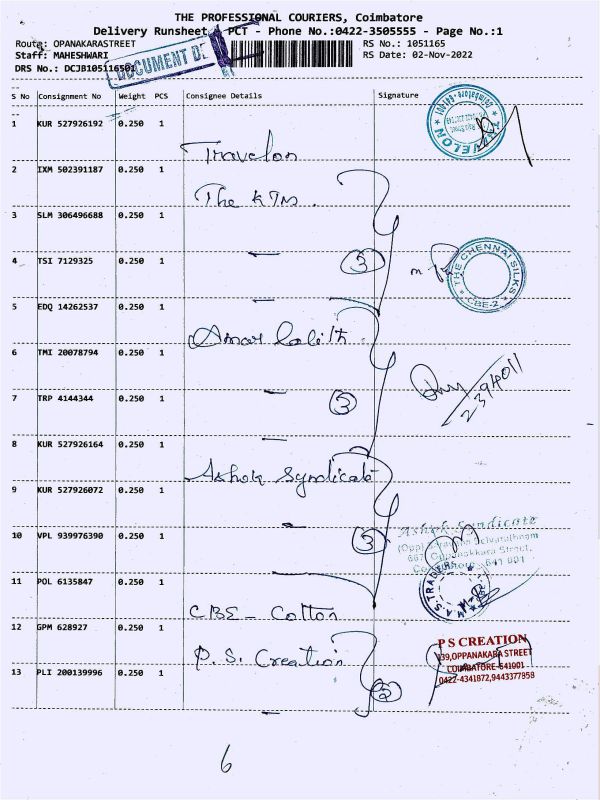 THE PROFESSIONAL COURIERS, Coimbatore
Delivery Runsheet PCT - Phone No.:0422-3505555 - Page No.:1
Route: OPANAKARASTREET
RS No.: 1051165
Staff: MAHESHWARI
RS Date: 02-Nov-2022
DRS No.: DCJB105116501
DOCUMENT DE
S No Consignment No Weight PCS Consignee Details Signature
1 KUR 527926192 0.250 1 Travelon
TRAVELON
2 IXM 502391187 0.250 1 The KTM.
3 SLM 306496688 0.250 1
4 TSI 7129325 0.250 1 3
THE CHENNAI SILKS
CBE-2
5 EDQ 14262537 0.250 1 Amar Lalith
6 TMI 20078794 0.250 1
7 TRP 4144344 0.250 1 3
8 KUR 527926164 0.250 1 Ashok Syndicate
9 KUR 527926072 0.250 1
10 VPL 939976390 0.250 1 3
Ashok Syndicate
Street,
641 001
11 POL 6135847 0.250 1 CBE - Cotton
12 GPM 628927 0.250 1 P.S. Creation
P S CREATION
139,OPPANAKARA STREET
COIMBATORE-641001
0422-4341872,9443377858
13 PLI 200139996 0.250 1 2
6